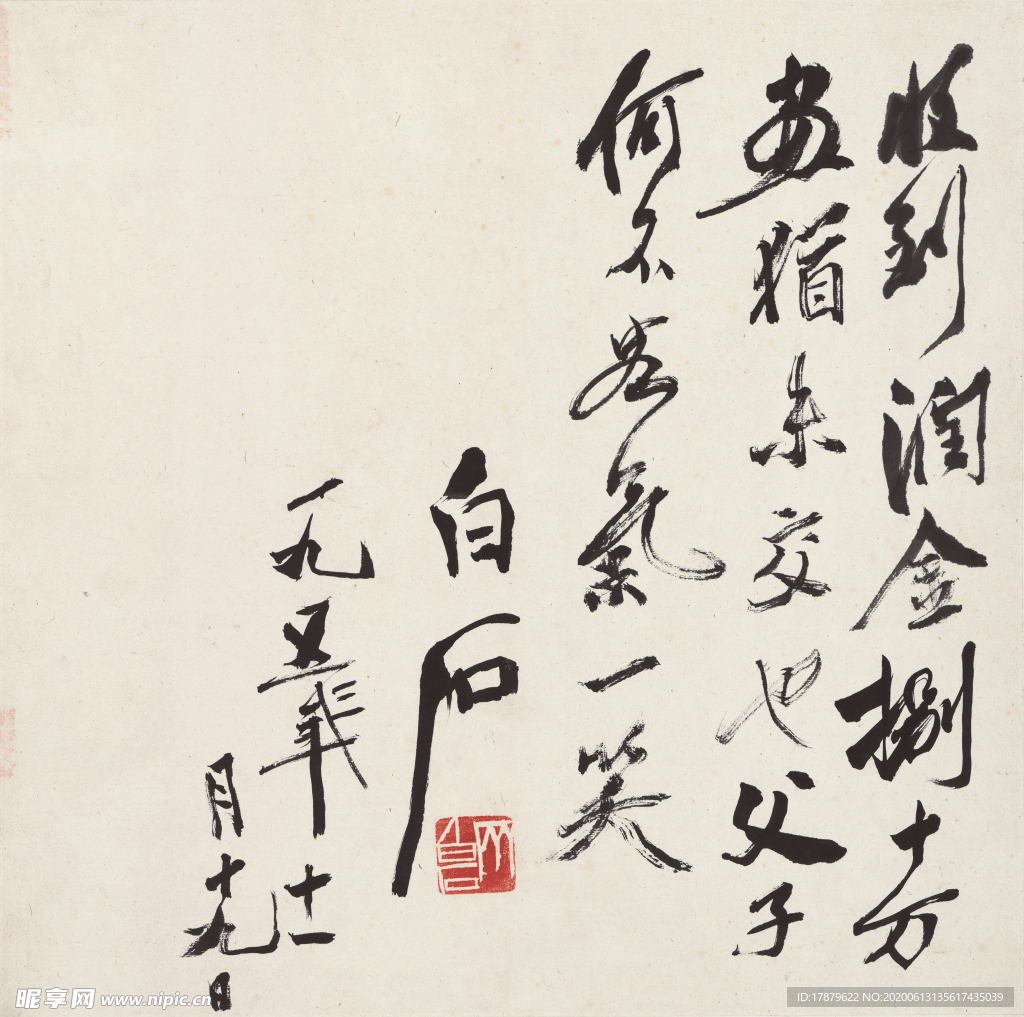 收到潤金捌十万
畫猶未交也父子
何不客氣一笑
白石
一九五年十一
月十九日
昵享网 www.nipic.cn
ID:17879622 NO:20200613135617435039